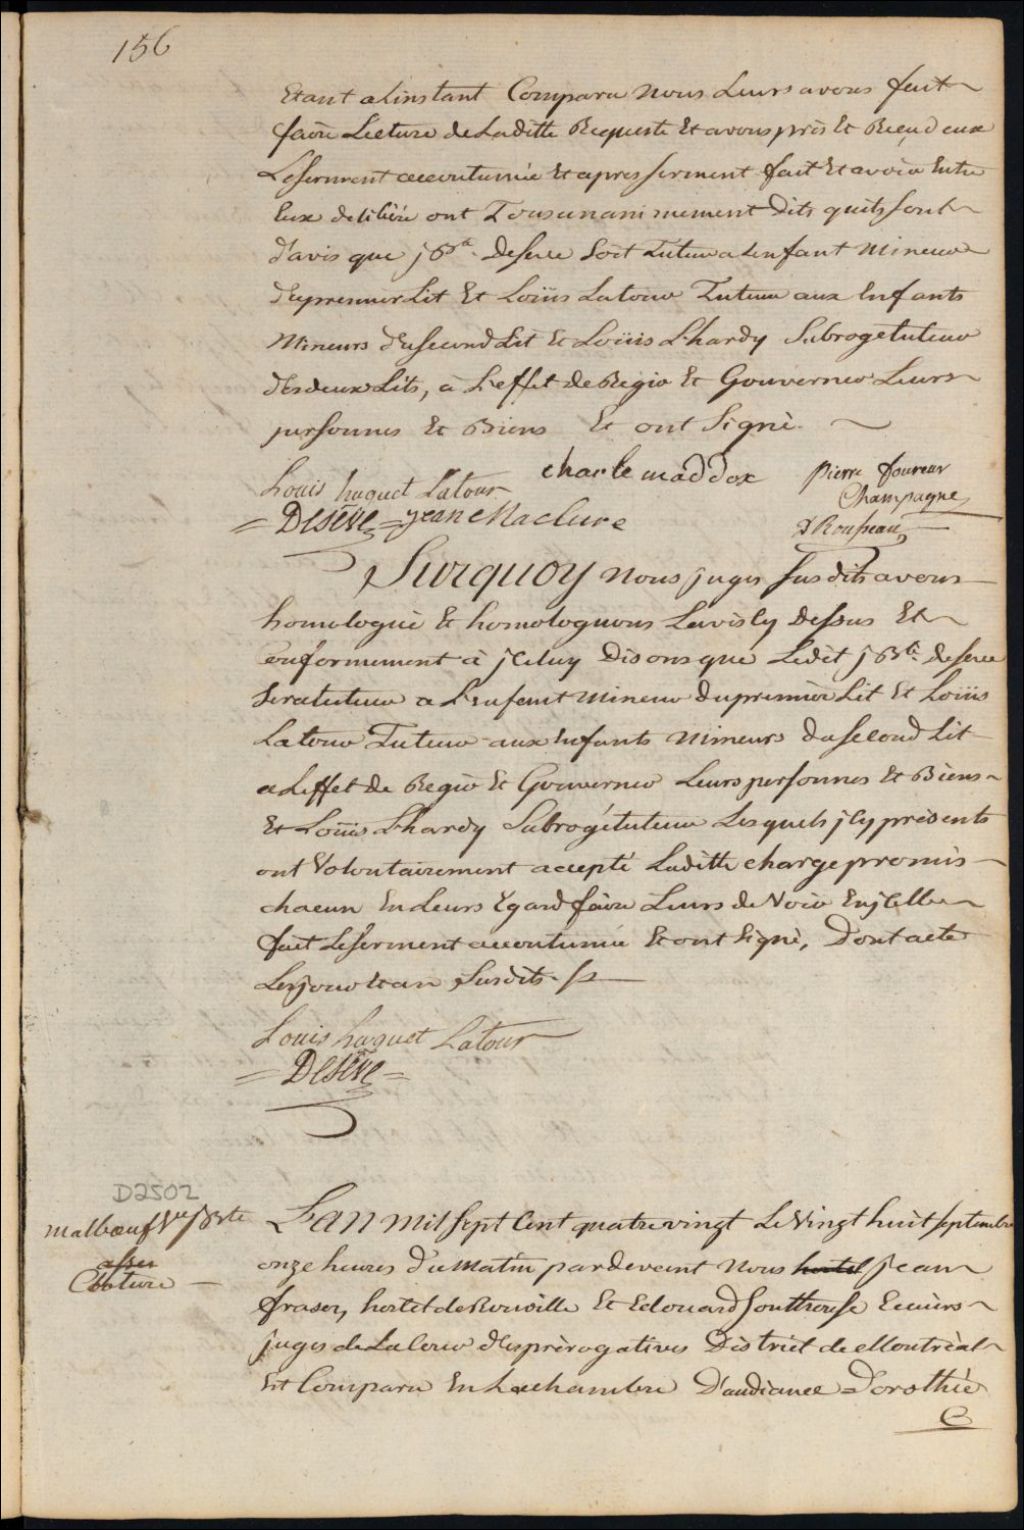 156
Etant alinstant Comparu Nous Leurs avons fait
faire Lecture de Laditte Requeste Et avons pris Et Reçu d'eux
Leserment accoutumée Et apres serment fait Et avoir Entre
Eux delibéré ont Tous unanimement Dits quils sont
d'avis que j Bte Deseve soit Tuteur a Lenfant Mineur
du premier Lit Et Loüis Latour Tuteur aux Enfants
Mineurs du second Lit Et Loüis L'hardy Subrogetuteur
des deux Lits, à L'effet de Regir Et Gouverner Leurs
personnes Et Biens Et ont Signé.
Louis huguet Latour charle maddox Pierre foureur
Champagne
= Deséve = jean Maclure
F Rousseau
Surquoy nous juges susdits avons
homologué Et homologuons Lavis Cy Dessus Et
Conformement à jCeluy Disons que Ledit j Bte deseve
sera tuteur a L'enfant mineur du premier Lit Et Loüis
Latour Tuteur aux Enfants Mineurs du second Lit
a Leffet de Regir Et Gouverner Leurs personnes Et Biens
Et Loüis L'hardy Subrogétuteur Lesquels jCy présents
ont Volontairement accepté Laditte charge promis
chacun En Leurs Egard faire Leurs de Voir En jCelle
fait Leserment accoutumée Et ont signé, Dont acte
Les jour Et an Susdits
Louis huguet Latour
= Deséve =
D2502
malbœuf Vve j Bte
asseu
Couture
L'an mil sept Cent quatre vingt Le Vingt huit septembre
onze heures du matin pardevant Nous hertel jean
fraser, hertel de Rouville Et Edouard Southouse Ecuiers
juges de La Cour des prérogatives District de Montréal
Est Comparu En La chambre D'audiance Dorothée